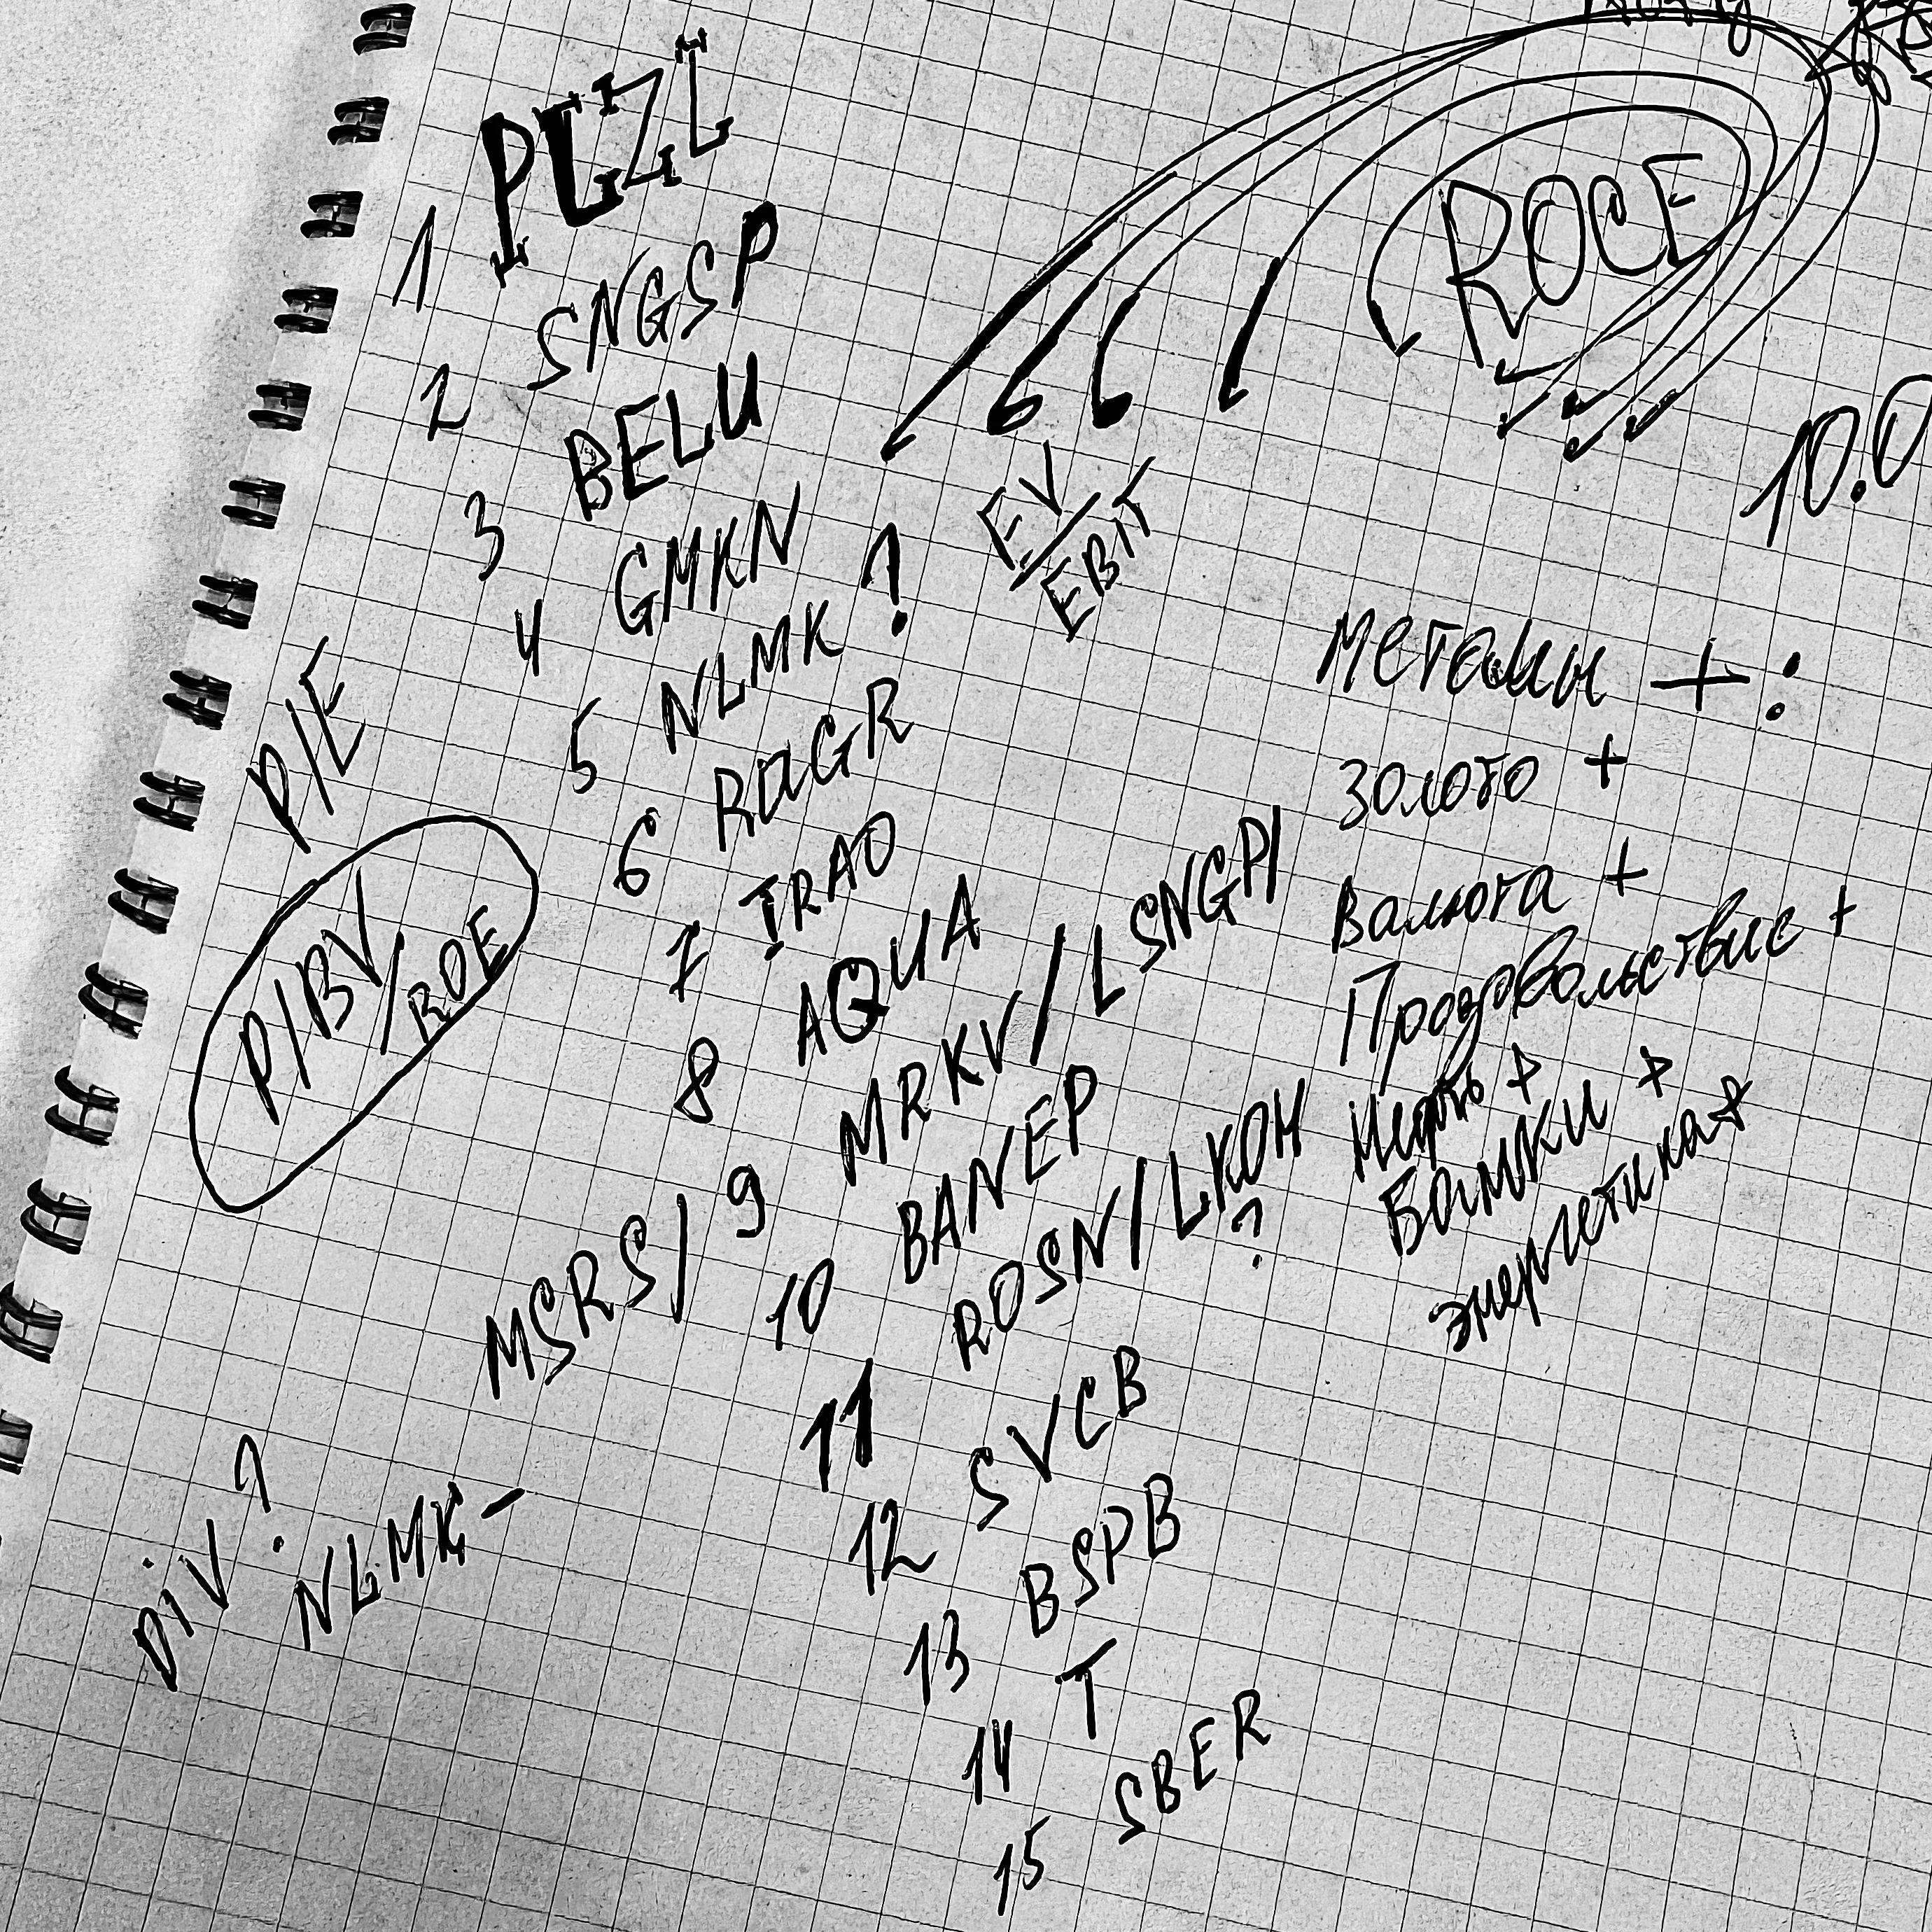 1 PLZL
2 SNGSP
3 BELU
4 GMKN
5 NLMK !
6 RAGR
7 IRAO
8 AQUA
9 MRKV / L SNGP /
MSRS /
10 BANEP
11 ROSN / LKOH ?
12 SVCB
13 BSPB
14 T
15 SBER
P/E
P/BV / ROE
DiV ?
NLMK -
ROCE
EV / EBIT
10.0
Металлы + :
Золото +
Валюта +
Продовольствие +
Нефть +
Банки +
энергетика +